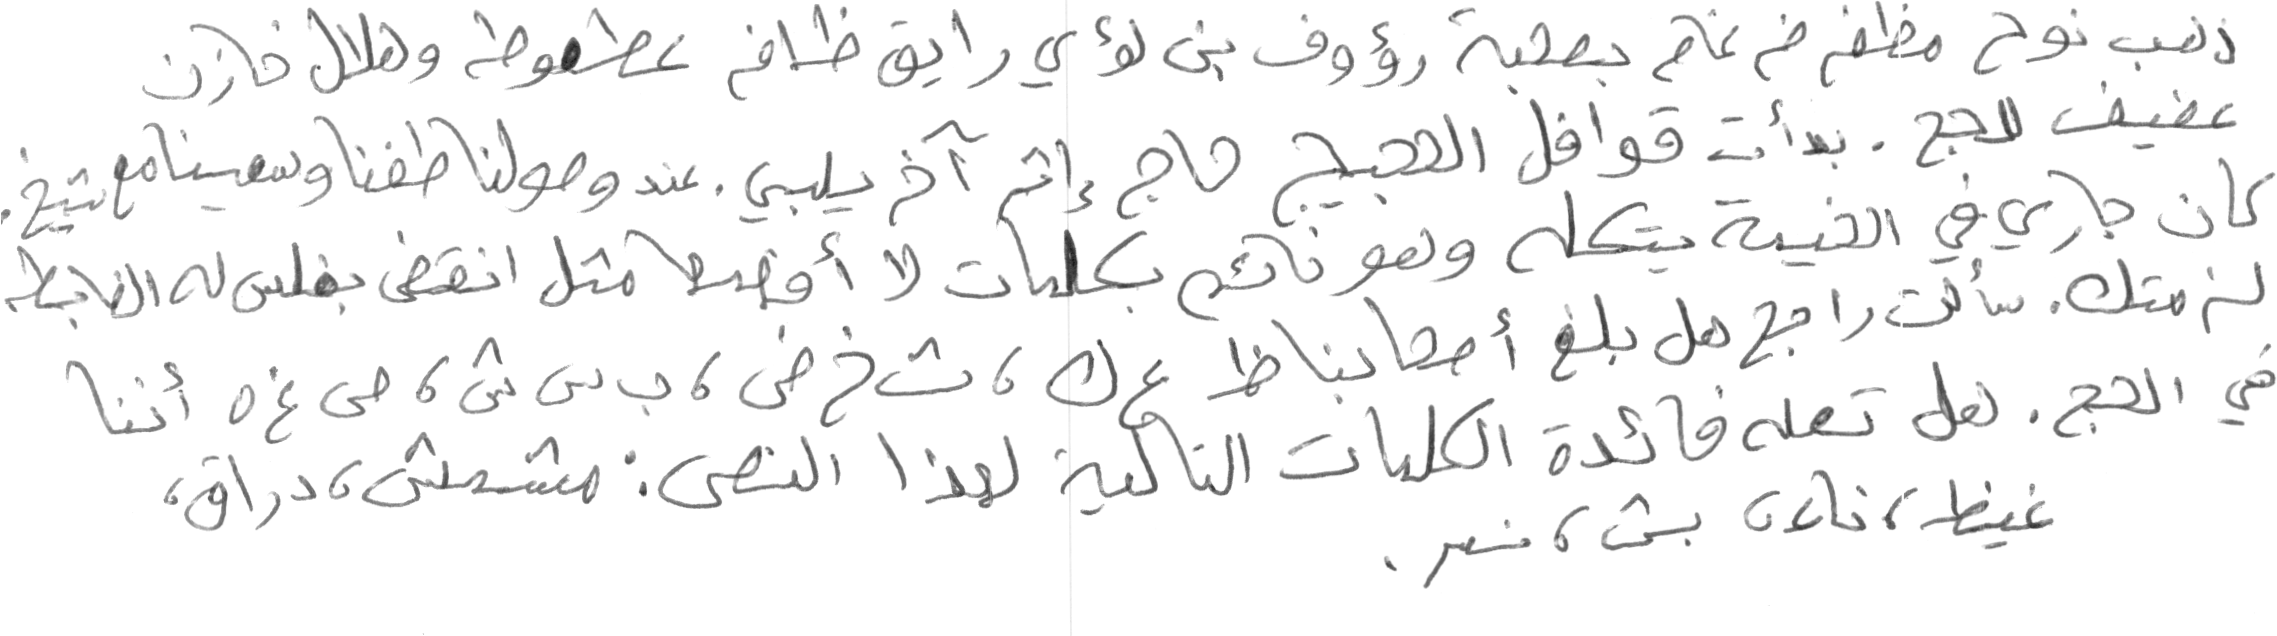 ذهب نوح مظفر ضرغام بصحبة رؤوف بن لؤي رايق ظافر عطعوط وهلال خازن
عفيف للحج. بدأت قوافل الحجيج حاج إثر آخر يلبي. عند وصولنا طفنا وسعينا مع شيخ.
كان جاري في الخيمة يتكلم وهو نائم بكلمات لا أفهمها مثل انقض بغلس له الضابط
لن متك. سألت راجح هل بلغ أصحابنا ظ ع ك، ث خ ض، ب س ش، ص غ ه أننا
في الحج. هل تعلم فائدة الكلمات التالية لهذا النص: مشمش، دراق،
غيظ، ناء، بث، نسر.